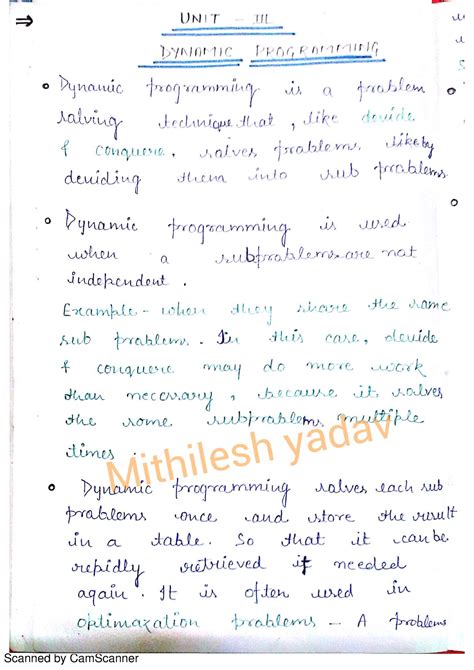 ⇒ UNIT - III
DYNAMIC PROGRAMMING
Dynamic programming is a problem
salving technique that, like devide
& conquere, salves problems. likeby
deviding them into sub problems
Dynamic programming is used
when a subproblems are not
independent.
Example - when they share the same
sub problems. In this case, devide
& conquere may do more work
than necessary, because it salves
the same subproblems multiple
times.
Mithilesh yadav
Dynamic programming salves each sub
problems once and store the result
in a table. So that it can be
repidly retrieved if needed
again. It is often used in
optimazation problems - A problems
Scanned by CamScanner